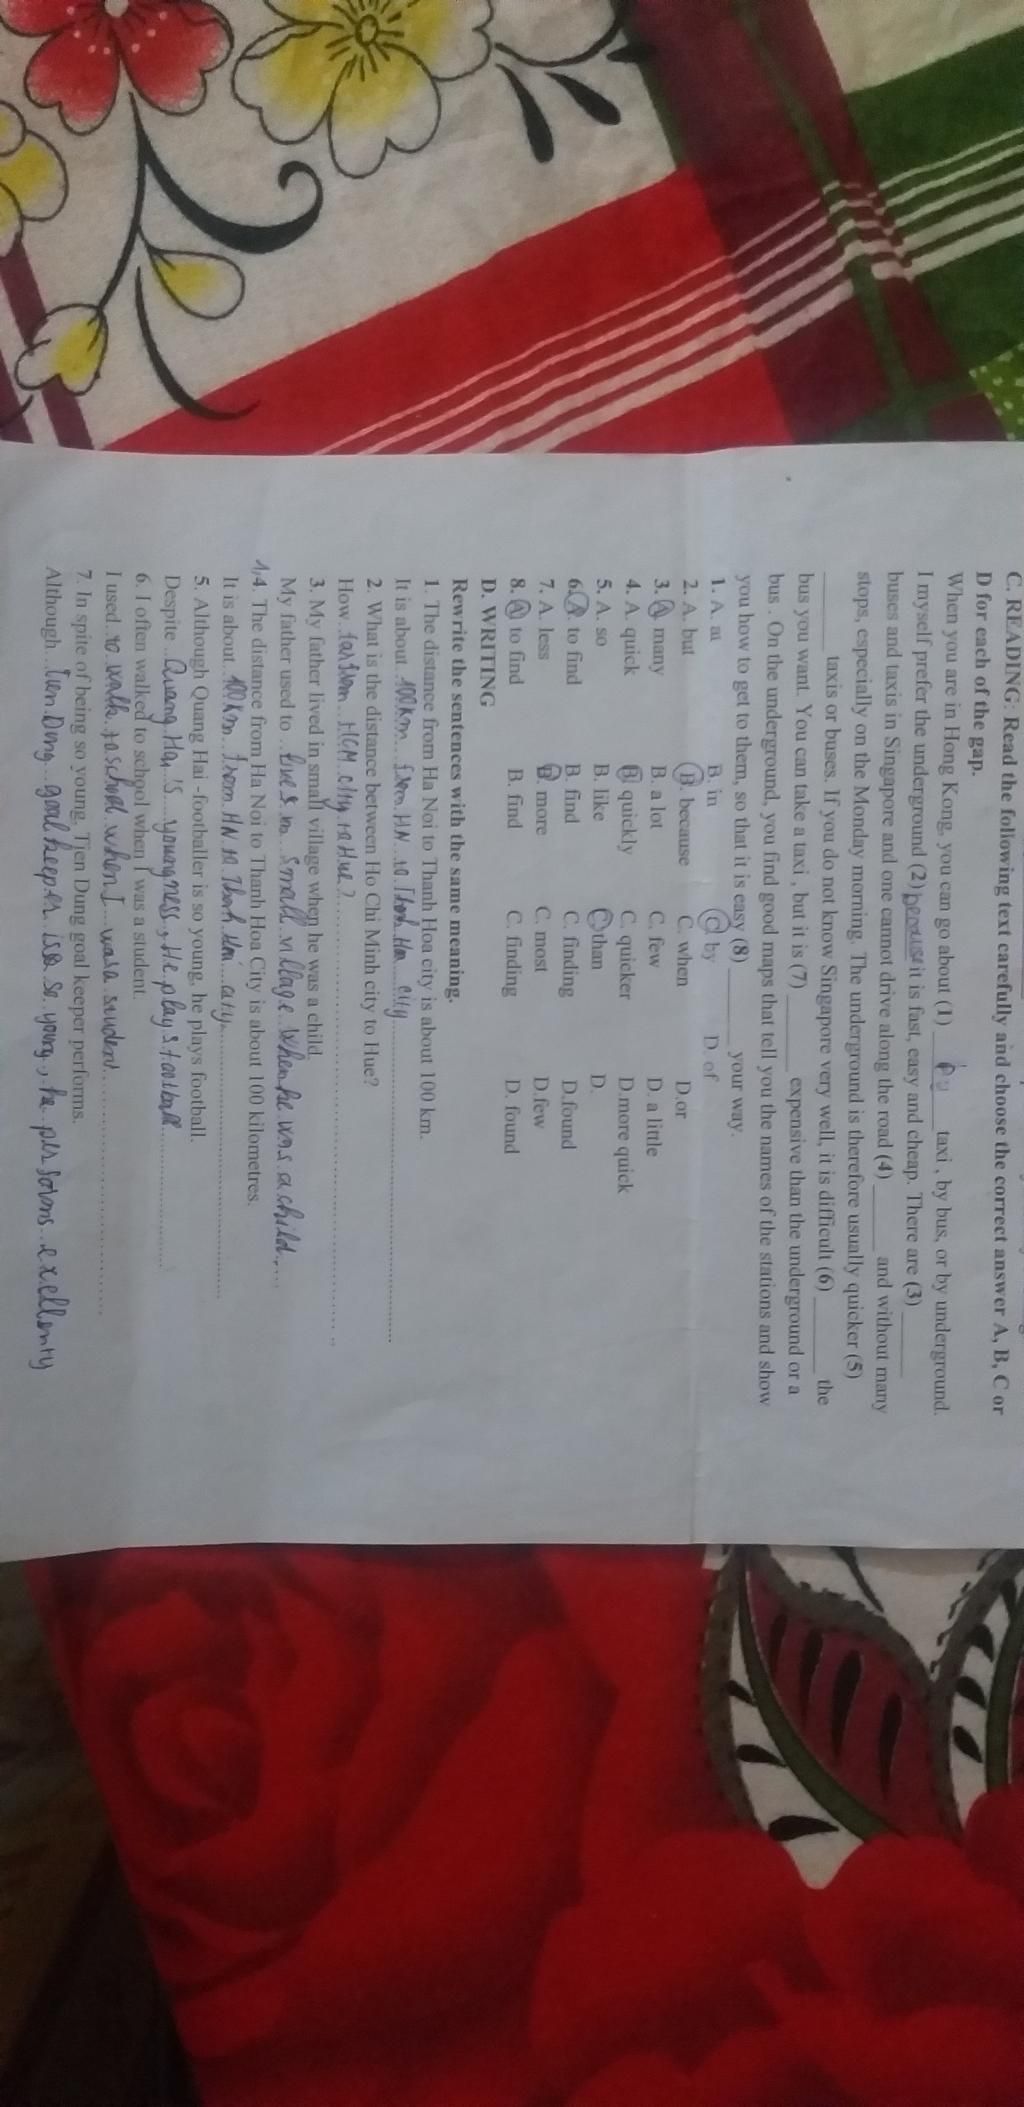 C. READING: Read the following text carefully and choose the correct answer A, B, C or
D for each of the gap.
When you are in Hong Kong, you can go about (1) ___by___ taxi , by bus, or by underground.
I myself prefer the underground (2) because it is fast, easy and cheap. There are (3) ______
buses and taxis in Singapore and one cannot drive along the road (4) ______ and without many
stops, especially on the Monday morning. The underground is therefore usually quicker (5)
______ taxis or buses. If you do not know Singapore very well, it is difficult (6) ______ the
bus you want. You can take a taxi , but it is (7) ______ expensive than the underground or a
bus . On the underground, you find good maps that tell you the names of the stations and show
you how to get to them, so that it is easy (8) ______ your way.
1. A. at B. in C. by D. of
2. A. but B. because C. when D.or
3. A. many B. a lot C. few D. a little
4. A. quick B. quickly C. quicker D.more quick
5. A. so B. like C. than D.
6. A. to find B. find C. finding D.found
7. A. less B. more C. most D.few
8. A. to find B. find C. finding D. found
D. WRITING
Rewrite the sentences with the same meaning.
1. The distance from Ha Noi to Thanh Hoa city is about 100 km.
It is about 100km from HN to Thanh Hoa city
2. What is the distance between Ho Chi Minh city to Hue?
How far from HCM city to Hue?
3. My father lived in small village when he was a child.
My father used to lives in small village when he was a child
4. The distance from Ha Noi to Thanh Hoa City is about 100 kilometres.
It is about 100km from HN to Thanh Hoa city
5. Although Quang Hai -footballer is so young, he plays football.
Despite Quang Hai's youngness, He plays football
6. I often walked to school when I was a student.
I used to walk to school when I was a student
7. In spite of being so young, Tien Dung goal keeper performs.
Although Tien Dung goal keeper is so young, he performs excellenty